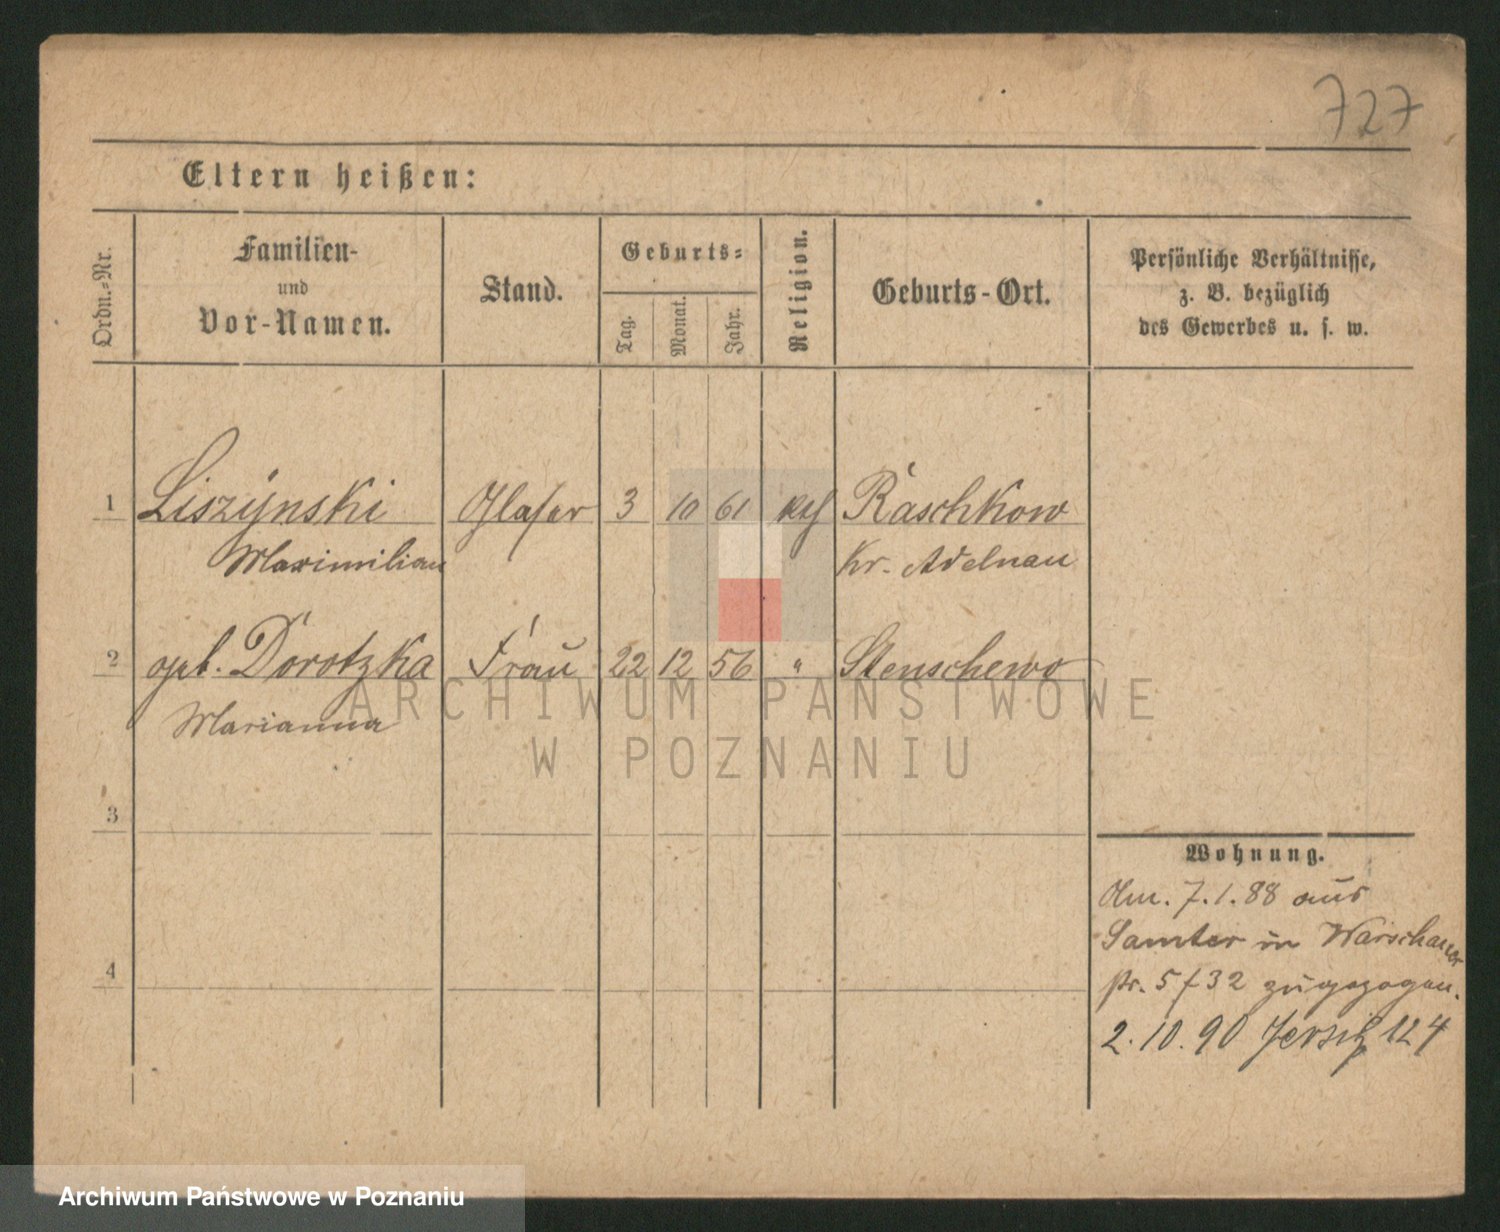 727
Eltern heißen:
Ordn.-Nr.
Familien-
und
Vor-Namen.
Stand.
Geburts-
Tag.
Monat.
Jahr.
Religion.
Geburts-Ort.
Persönliche Verhältnisse,
z. B. bezüglich
des Gewerbes u. s. w.
1 Liszÿnski Glaser 3 10 61 kth Raschkow
Maximilian Kr. Adelnau
2 geb. Dorotzka Frau 22 12 56 " Stenschewo
Marianna
ARCHIWUM PAŃSTWOWE
W POZNANIU
3
4
Wohnung.
Am. 7.1.88 aus
Samter in Warschauer
str. 5/32 zugezogen.
2.10.90 Jersitz 124
Archiwum Państwowe w Poznaniu